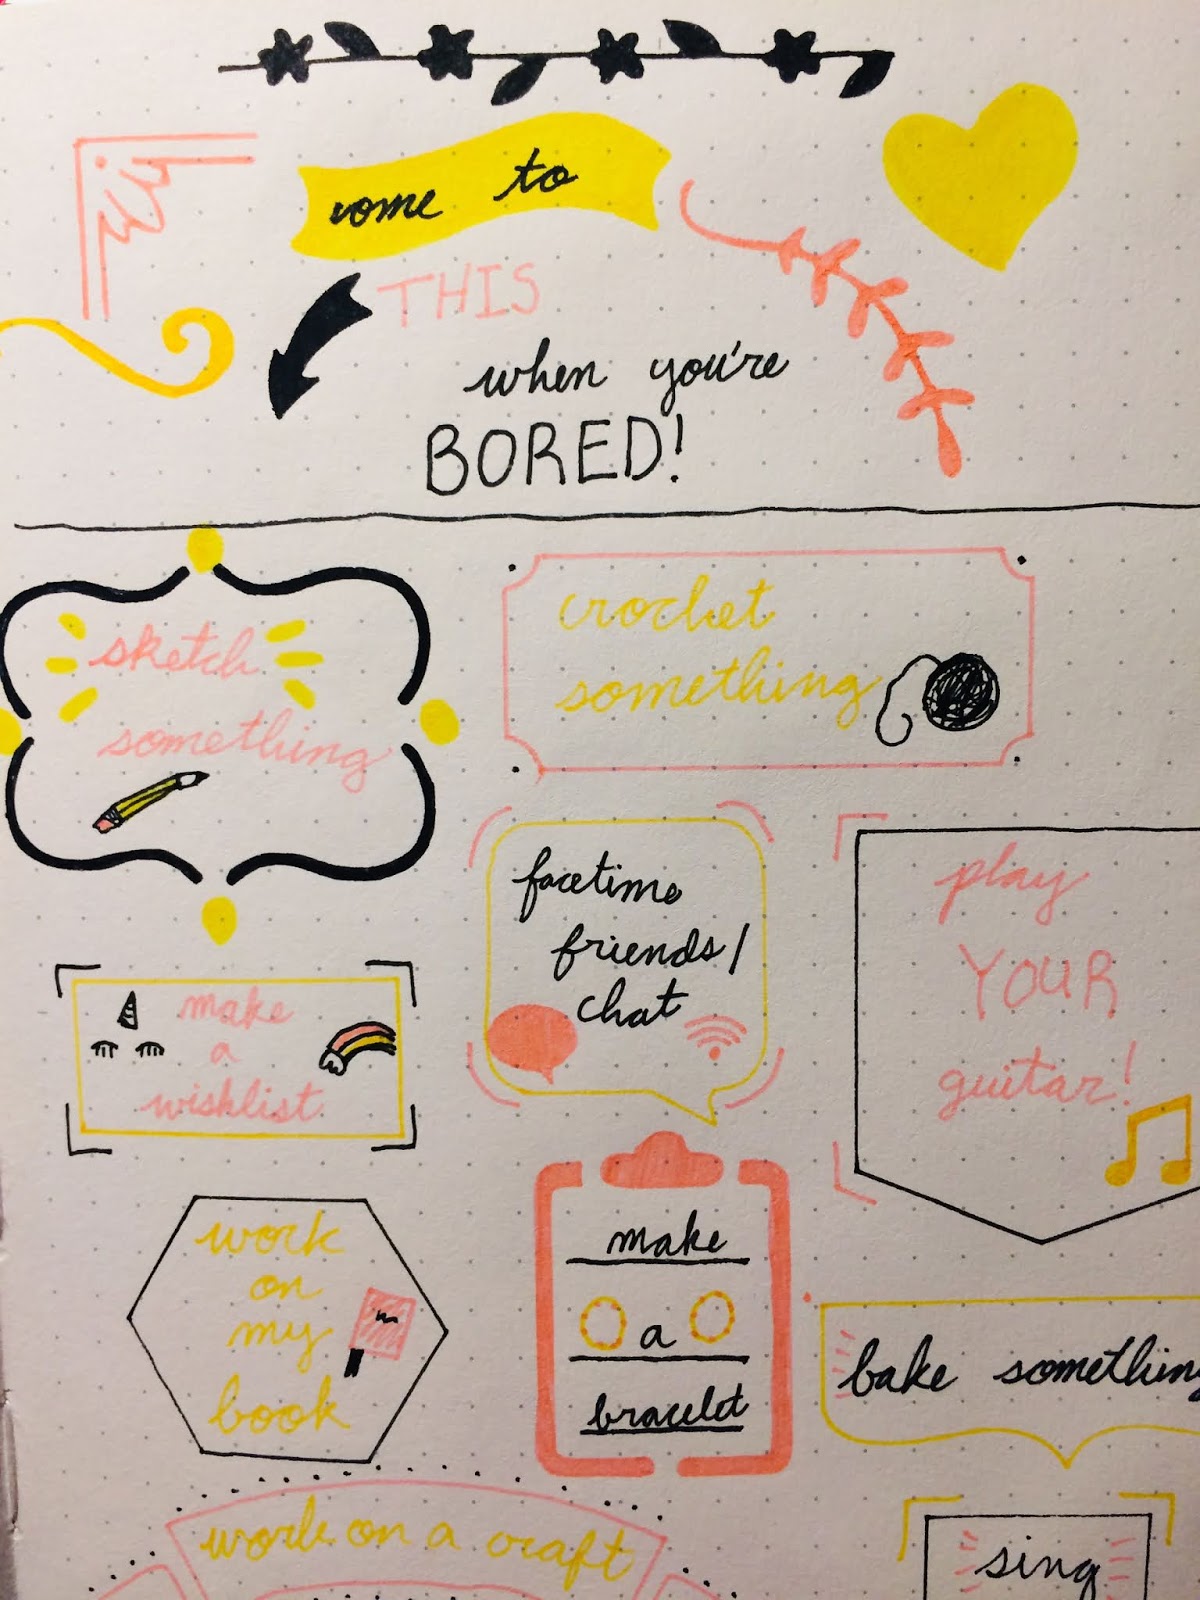 come to
THIS
when you're
BORED!
sketch
something
crochet
something
facetime
friends/
chat
play
YOUR
guitar!
make
a
wishlist
work
on
my
book
make
a
bracelet
bake something
work on a craft
sing